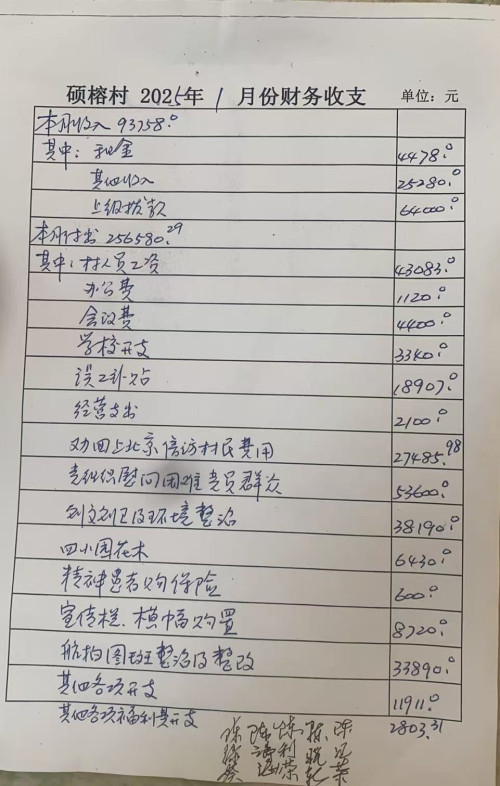 硕榕村 2025年 1 月份财务收支 单位：元
本月收入 93758.0
其中：租金 4478.0
其他收入 25280.0
上级拨款 64000.0
本月付出 256580.29
其中：村人员工资 43083.0
办公费 1120.0
会议费 4400.0
学校开支 3340.0
误工补贴 18907.0
经营支出 2100.0
劝回上北京信访村民费用 27485.98
党组织慰问困难党员群众 53600.0
创文创卫及环境整治 38190.0
四小园花木 6430.0
精神患者购保险 600.0
宣传栏、横幅购置 8720.0
航拍图斑整治及整改 33890.0
其他各项开支 11911.0
其他各项福利其开支 2803.31